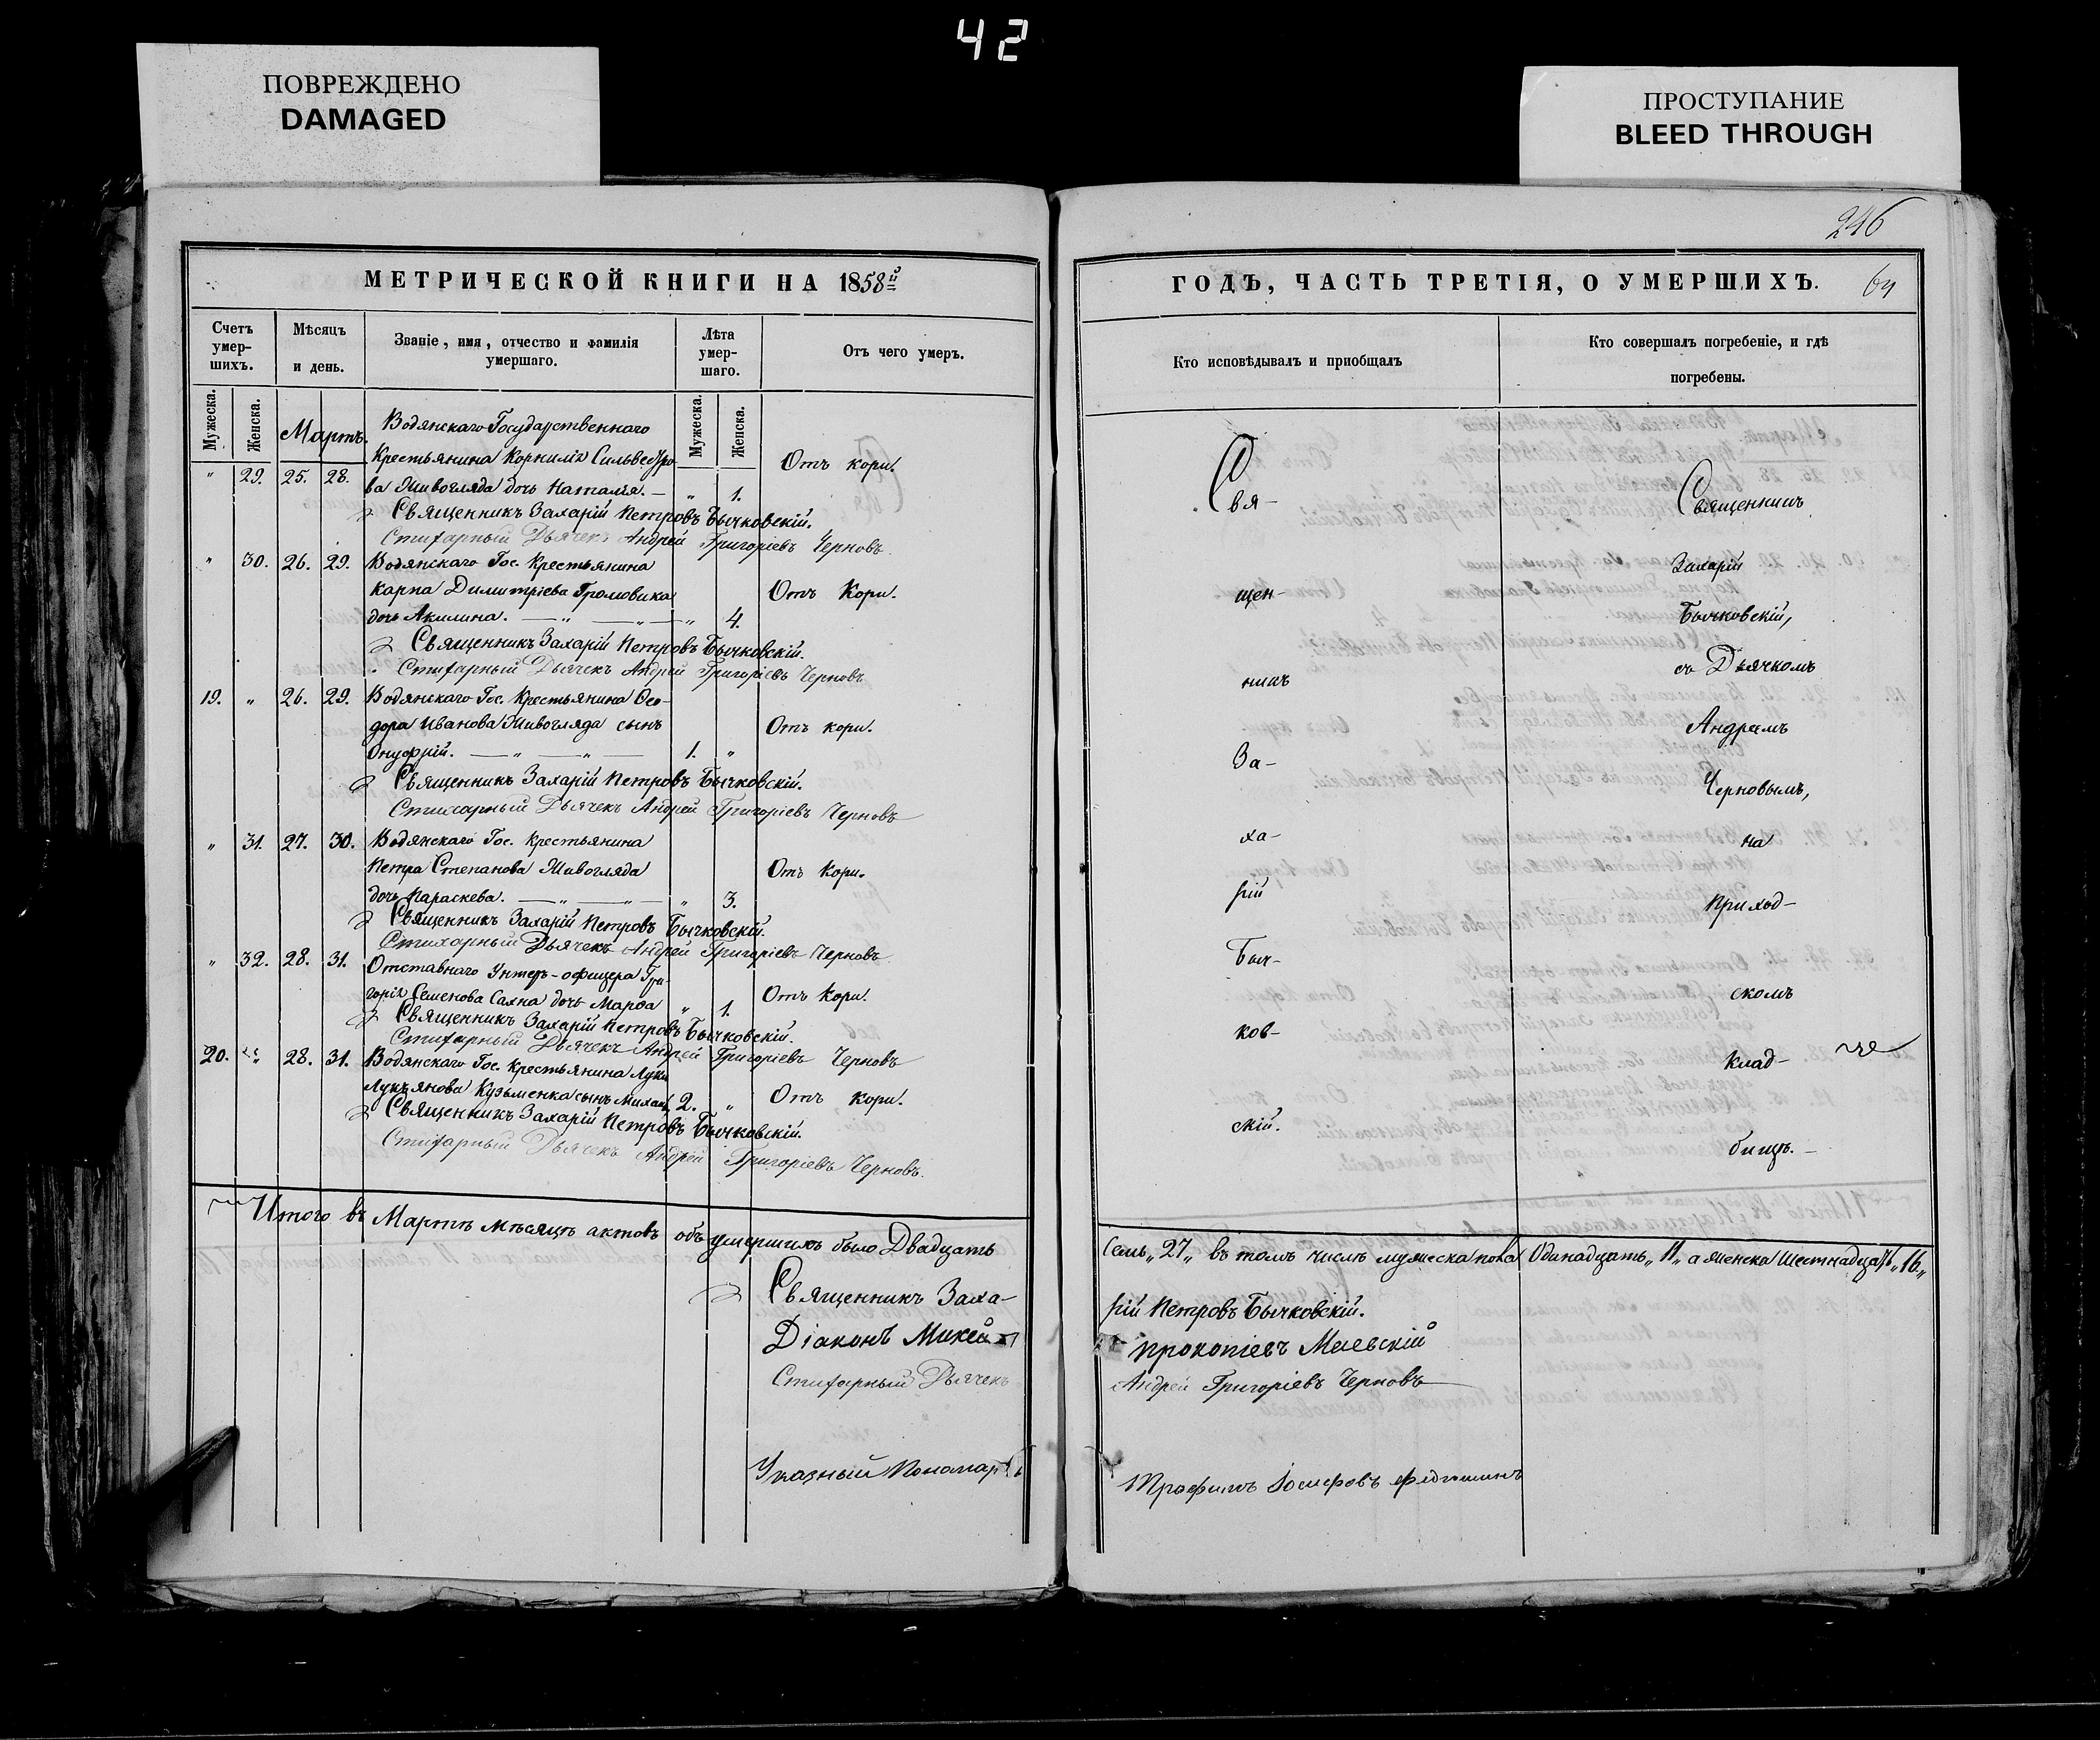 42
ПОВРЕЖДЕНО
DAMAGED
ПРОСТУПАНИЕ
BLEED THROUGH
246
МЕТРИЧЕСКОЙ КНИГИ НА 1858й
Счетъ умер-шихъ.
Мѣсяцъ и день.
Званіе, имя, отчество и фамилія умершаго.
Лѣта умер-шаго.
Отъ чего умеръ.
Мужеска. Женска.
Мужеска. Женска.
Мартъ.
Водянскаго Государственнаго
Крестьянина Корнилія Сильвестро-
" 29. 25. 28. ва Живогляда дочь Наталія. — " 1. Отъ кори.
Священникъ Захарій Петровъ Бычковскій.
Стихарный Дьячекъ Андрей Григоріевъ Черновъ
" 30. 26. 29. Водянскаго Гос. Крестьянина
Карпа Димитріева Громовика Отъ Кори.
дочь Акилина. — " — " — " 4.
Священникъ Захарій Петровъ Бычковскій.
Стихарный Дьячекъ Андрей Григоріевъ Черновъ
19. " 26. 29. Водянскаго Гос. Крестьянина Ѳео-
дора Иванова Живогляда сынъ Отъ кори.
Онуфрій. — " — " — 1. "
Священникъ Захарій Петровъ Бычковскій.
Стихарный Дьячекъ Андрей Григоріевъ Черновъ
" 31. 27. 30. Водянскаго Гос. Крестьянина
Петра Степанова Живогляда Отъ Кори.
дочь Параскева. — " — " — " 3.
Священникъ Захарій Петровъ Бычковскій.
Стихарный Дьячекъ Андрей Григоріевъ Черновъ
" 32. 28. 31. Отставнаго Унтеръ-офицера Гри-
горія Семенова Саяна дочь Марѳа " 1. Отъ Кори.
Священникъ Захарій Петровъ Бычковскій.
Стихарный Дьячекъ Андрей Григоріевъ Черновъ
20. " 28. 31. Водянскаго Гос. Крестьянина Луки
Лукьянова Кузьменка сынъ Михаил 2. " Отъ кори.
Священникъ Захарій Петровъ Бычковскій.
Стихарный Дьячекъ Андрей Григоріевъ Черновъ
Итого въ Мартѣ мѣсяцѣ актовъ объ умершихъ было Двадцать
Священникъ Заха-
Діаконъ
Стихарный Дьячекъ
Указный Пономарь
ГОДЪ, ЧАСТЬ ТРЕТІЯ, О УМЕРШИХЪ.
Кто исповѣдывалъ и приобщалъ
Кто совершалъ погребеніе, и гдѣ погребены.
Свя-
щен-
никъ
За-
ха-
рій
Быч-
ков-
скій.
Священникъ
Захарій
Бычковскій,
съ Дьячкомъ
Андреемъ
Черновымъ,
на
Приход-
скомъ
Клад-
бищѣ. —
Семь „27„ въ томъ числѣ мужеска пола Одинадцать „11„ а женска Шестнадцать „16„
рій Петровъ Бычковскій.
Прокопіевъ Маевскій
Андрей Григоріевъ Черновъ
Трофимъ Іосифовъ